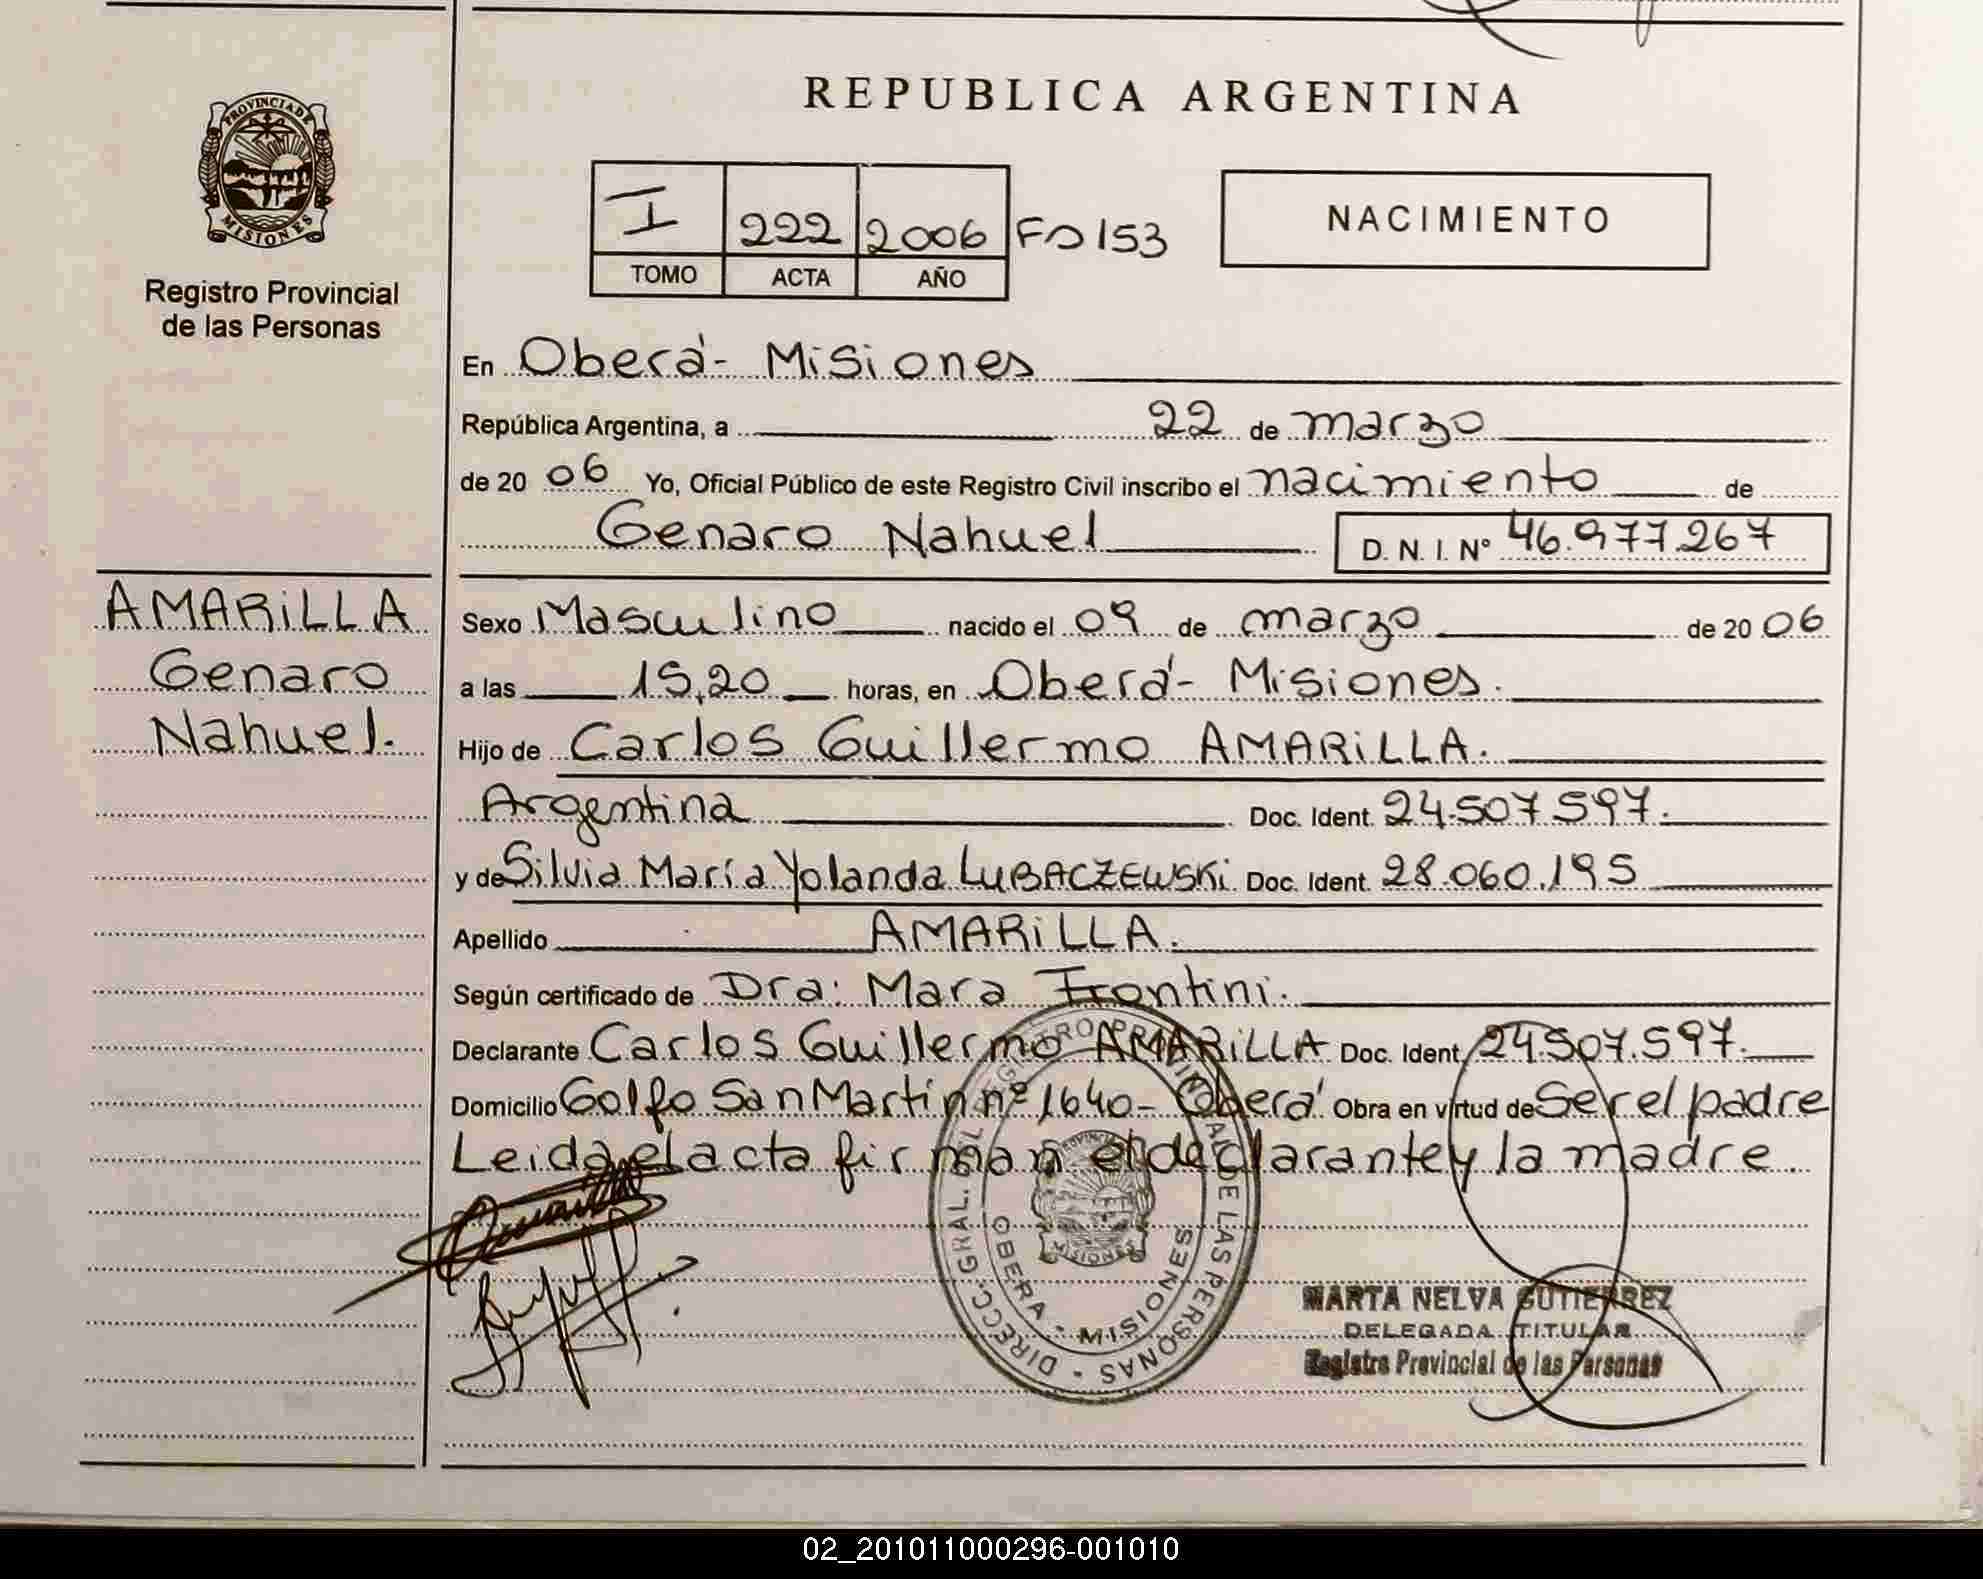 REPUBLICA ARGENTINA
PROVINCIA DE
MISIONES
Registro Provincial
de las Personas
I 222 2006 Fº 153
TOMO ACTA AÑO
NACIMIENTO
En Oberá - Misiones
República Argentina, a 22 de marzo
de 20 06 Yo, Oficial Público de este Registro Civil inscribo el nacimiento de
Genaro Nahuel D. N. I. Nº 46.977.267
AMARiLLA
Genaro
Nahuel.
Sexo Masculino nacido el 09 de marzo de 20 06
a las 15,20 horas, en Oberá - Misiones.
Hijo de Carlos Guillermo AMARiLLA.
Argentina Doc. Ident. 24.507.597.
y de Silvia María Yolanda LUBACZEWSKi Doc. Ident. 28.060.195
Apellido AMARiLLA.
Según certificado de Dra: Mara Frontini.
Declarante Carlos Guillermo AMARiLLA Doc. Ident. 24.507.597.
Domicilio Golfo San Martín nº 1640 - Oberá Obra en virtud de Ser el padre
Leida el acta firman el declarante y la madre.
DIRECC. GRAL. DEL REGISTRO PROVINCIAL DE LAS PERSONAS
PROVINCIA
MISIONES
OBERA - MISIONES
MARTA NELVA GUTIERREZ
DELEGADA TITULAR
Registro Provincial de las Personas
02_201011000296-001010